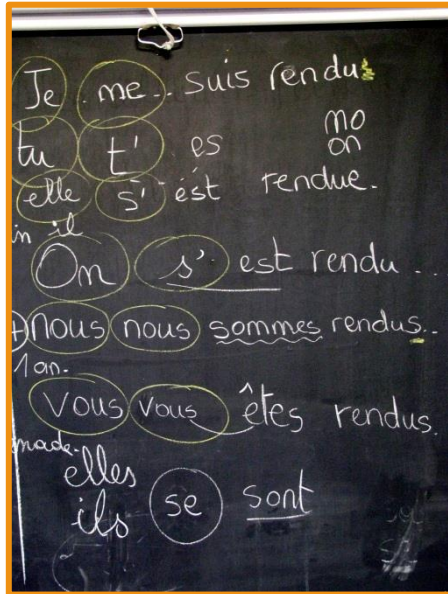 Je me... suis rendus
tu t' es mo
on
elle s' est rendue.
in il
On s' est rendu ...
nous nous sommes rendus..
1an.
vous vous êtes rendus.
made.
elles
ils se sont